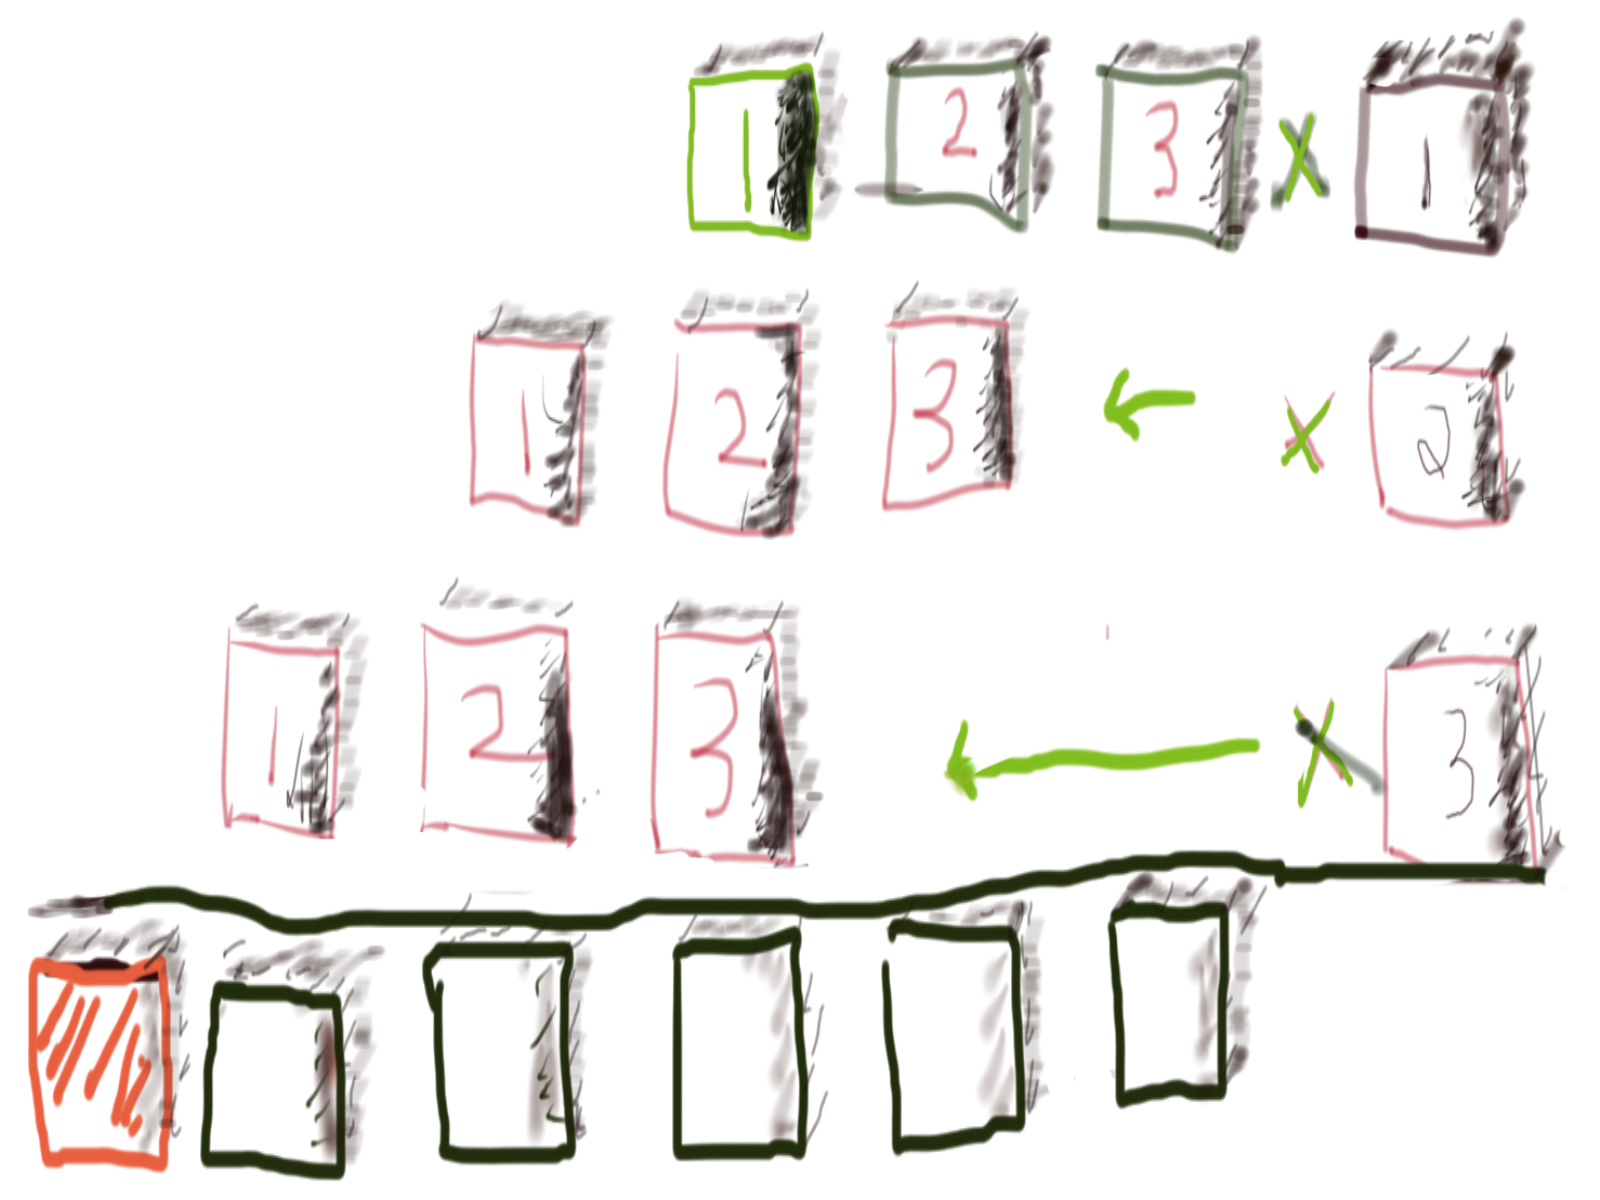 1 2 3 x 1
1 2 3 ← x 2
1 2 3 ← x 3